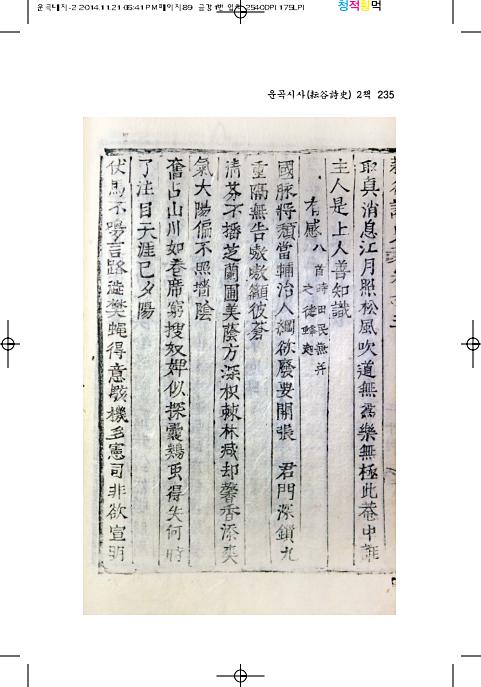 운곡대지-2 2014.11.21 05:41 PM 페이지89 2540DPI 175LPI
청적황먹
운곡시사(耘谷詩史) 2책 235
取真消息江月照松風吹道無爲樂無極此菴中誰
主人是上人善知識
有感 八首時田民無并
之徒蜂起
國脉將頹當輔治人綱欲廢要開張 君門深鎖九
重隔無告嗷嗷籲彼蒼
清芬不播芝蘭圃美蔭方深枳棘林減却馨香添爽
氣大陽偏不照墻陰
奮占山川如卷席窮搜奴婢似探囊鷄虫得失何時
了注目天涯已夕陽
伏馬不鳴言路澁樊蝇得意駭機多憲司非欲宣明